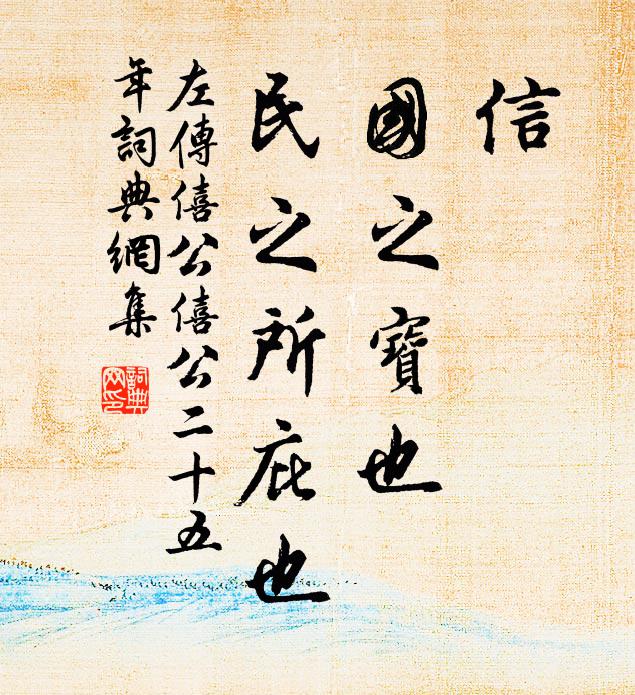 信
國之寶也
民之所庇也
左傳僖公僖公二十五
年詞典網集
詞典
网印